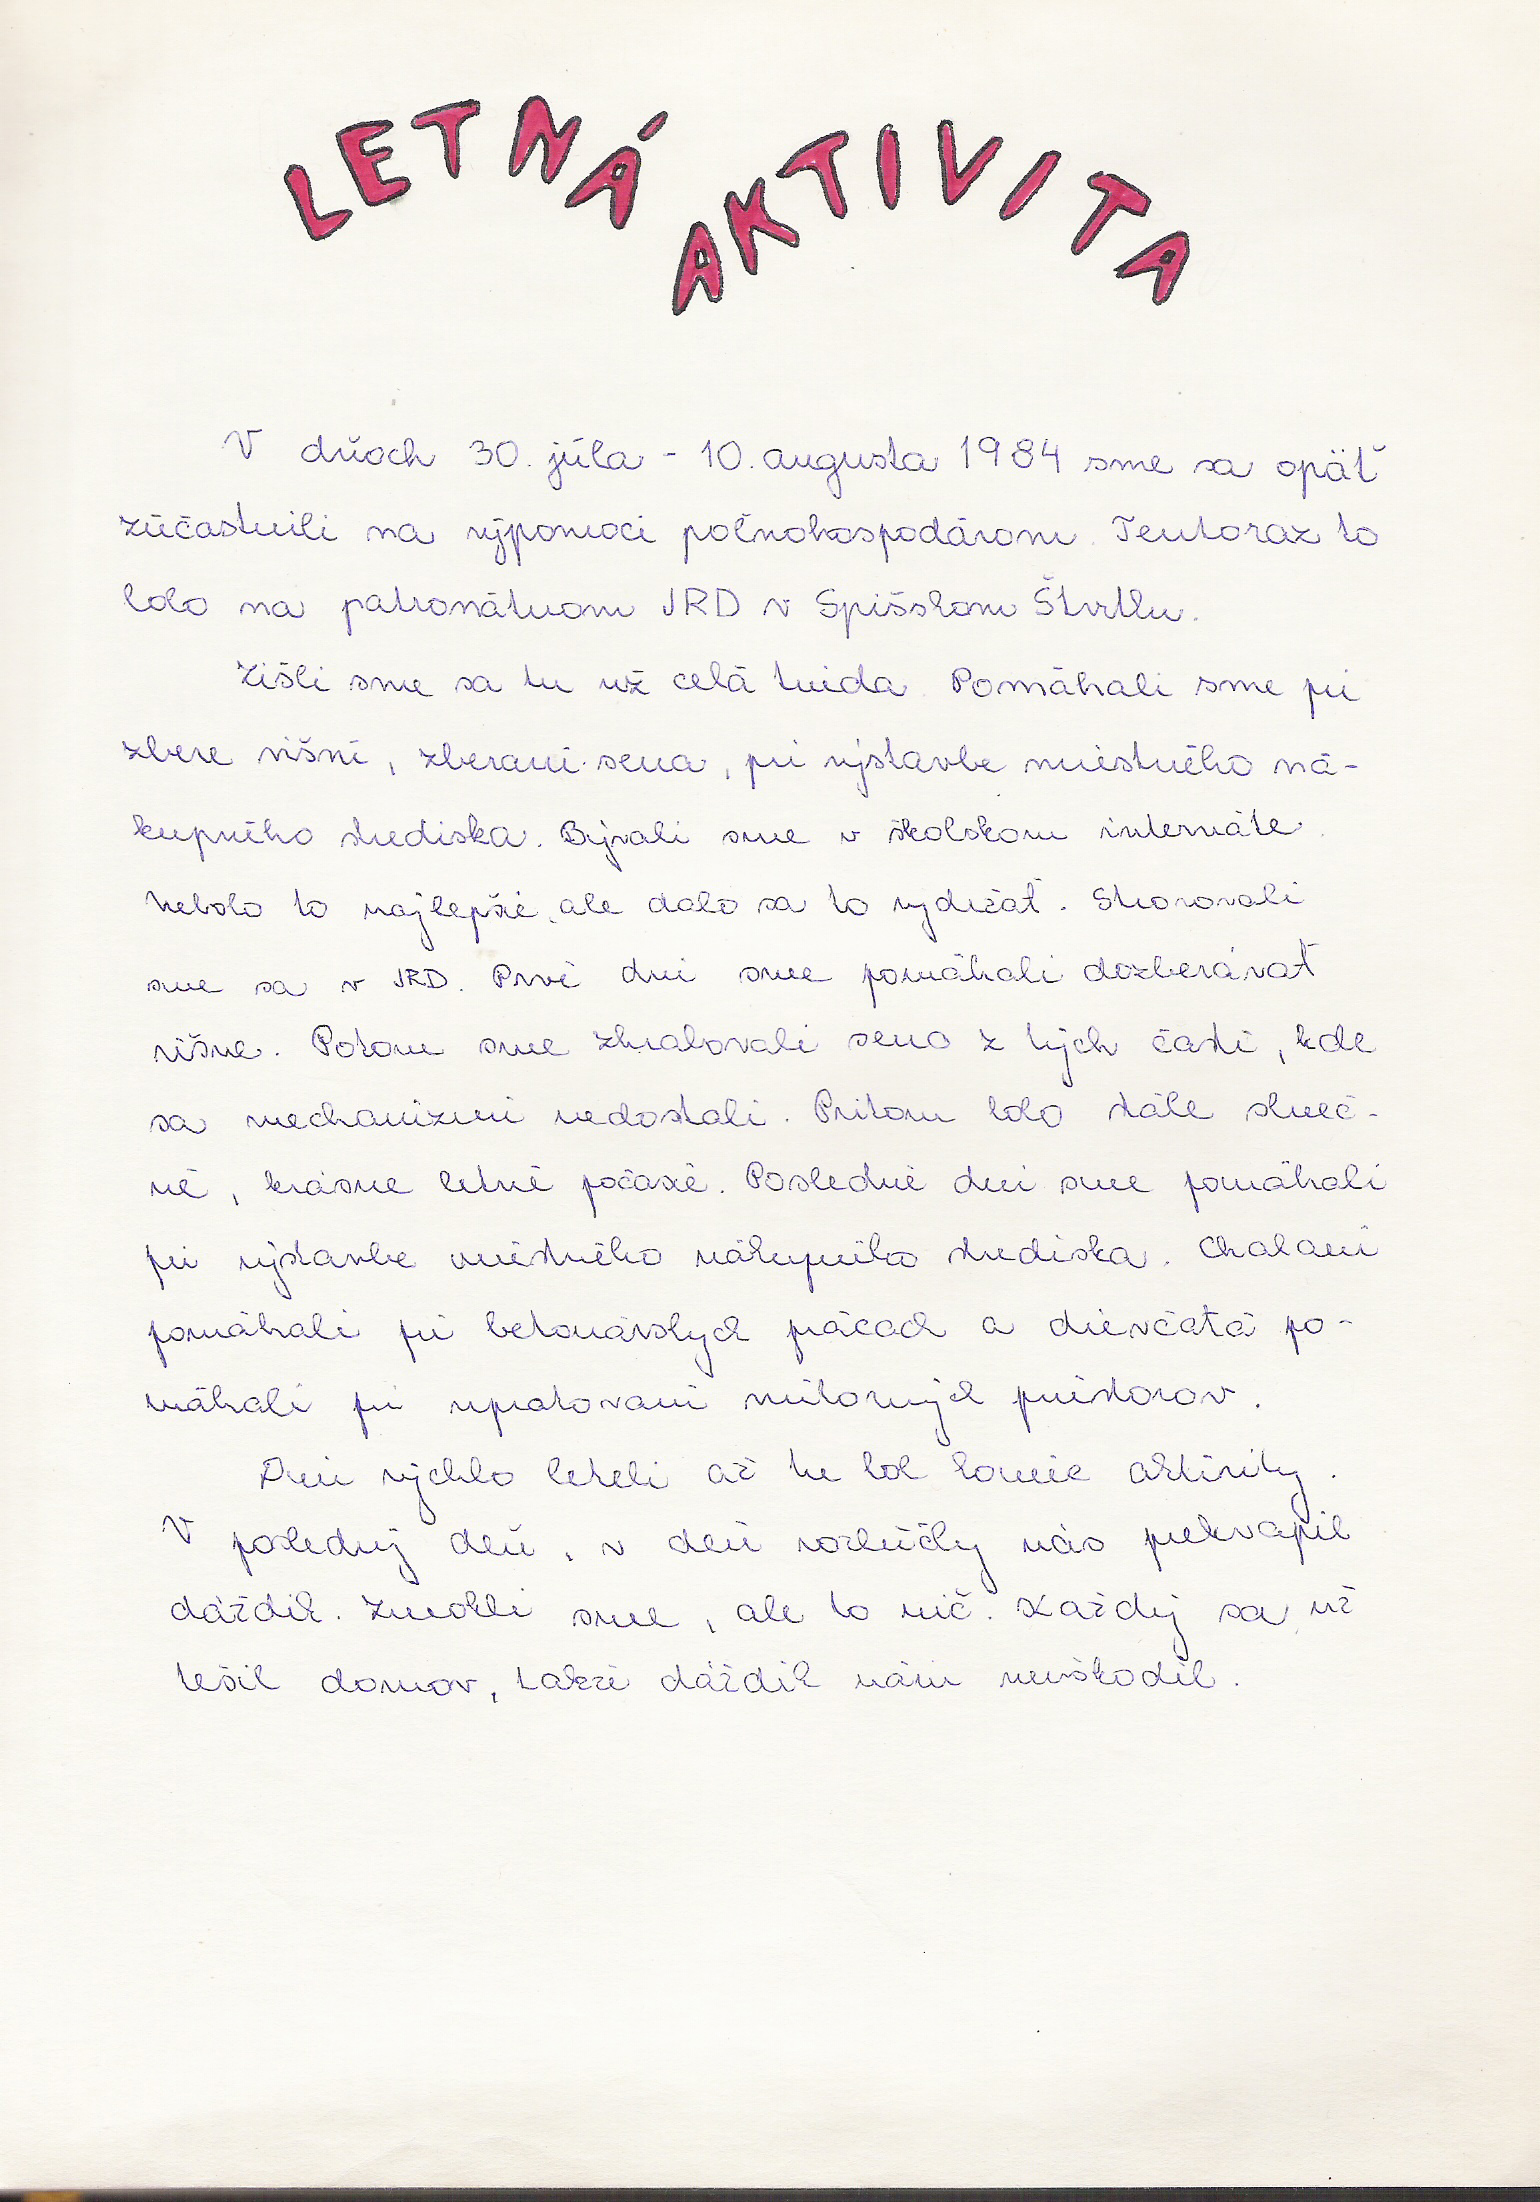 LETNÁ AKTIVITA
V dňoch 30. júla - 10. augusta 1984 sme sa opäť
zúčastnili na výpomoci poľnohospodárom. Tentoraz to
bolo na patronátnom JRD v Spišskom Štvrtku.
Zišli sme sa tu už celá trieda. Pomáhali sme pri
zbere višní, zberaní sena, pri výstavbe miestného ná-
kupného strediska. Bývali sme v školskom internáte.
Nebolo to najlepšie, ale dalo sa to vydržať. Stravovali
sme sa v JRD. Prvé dni sme pomáhali dozberávať
višne. Potom sme zhrabovali seno z tých častí, kde
sa mechanizmi nedostali. Pritom bolo stále slneč-
né, krásne letné počasie. Posledné dni sme pomáhali
pri výstavbe miestného nákupného strediska. Chalani
pomáhali pri betonárskych prácach a dievčatá po-
máhali pri upratovaní vnútorných priestorov.
Dni rýchlo leteli až tu bol koniec aktivity.
V posledný deň, v deň rozlúčky nás prekvapil
dáždik. Zmokli sme, ale to nič. Každý sa už
tešil domov, takže dáždik nám neuškodil.